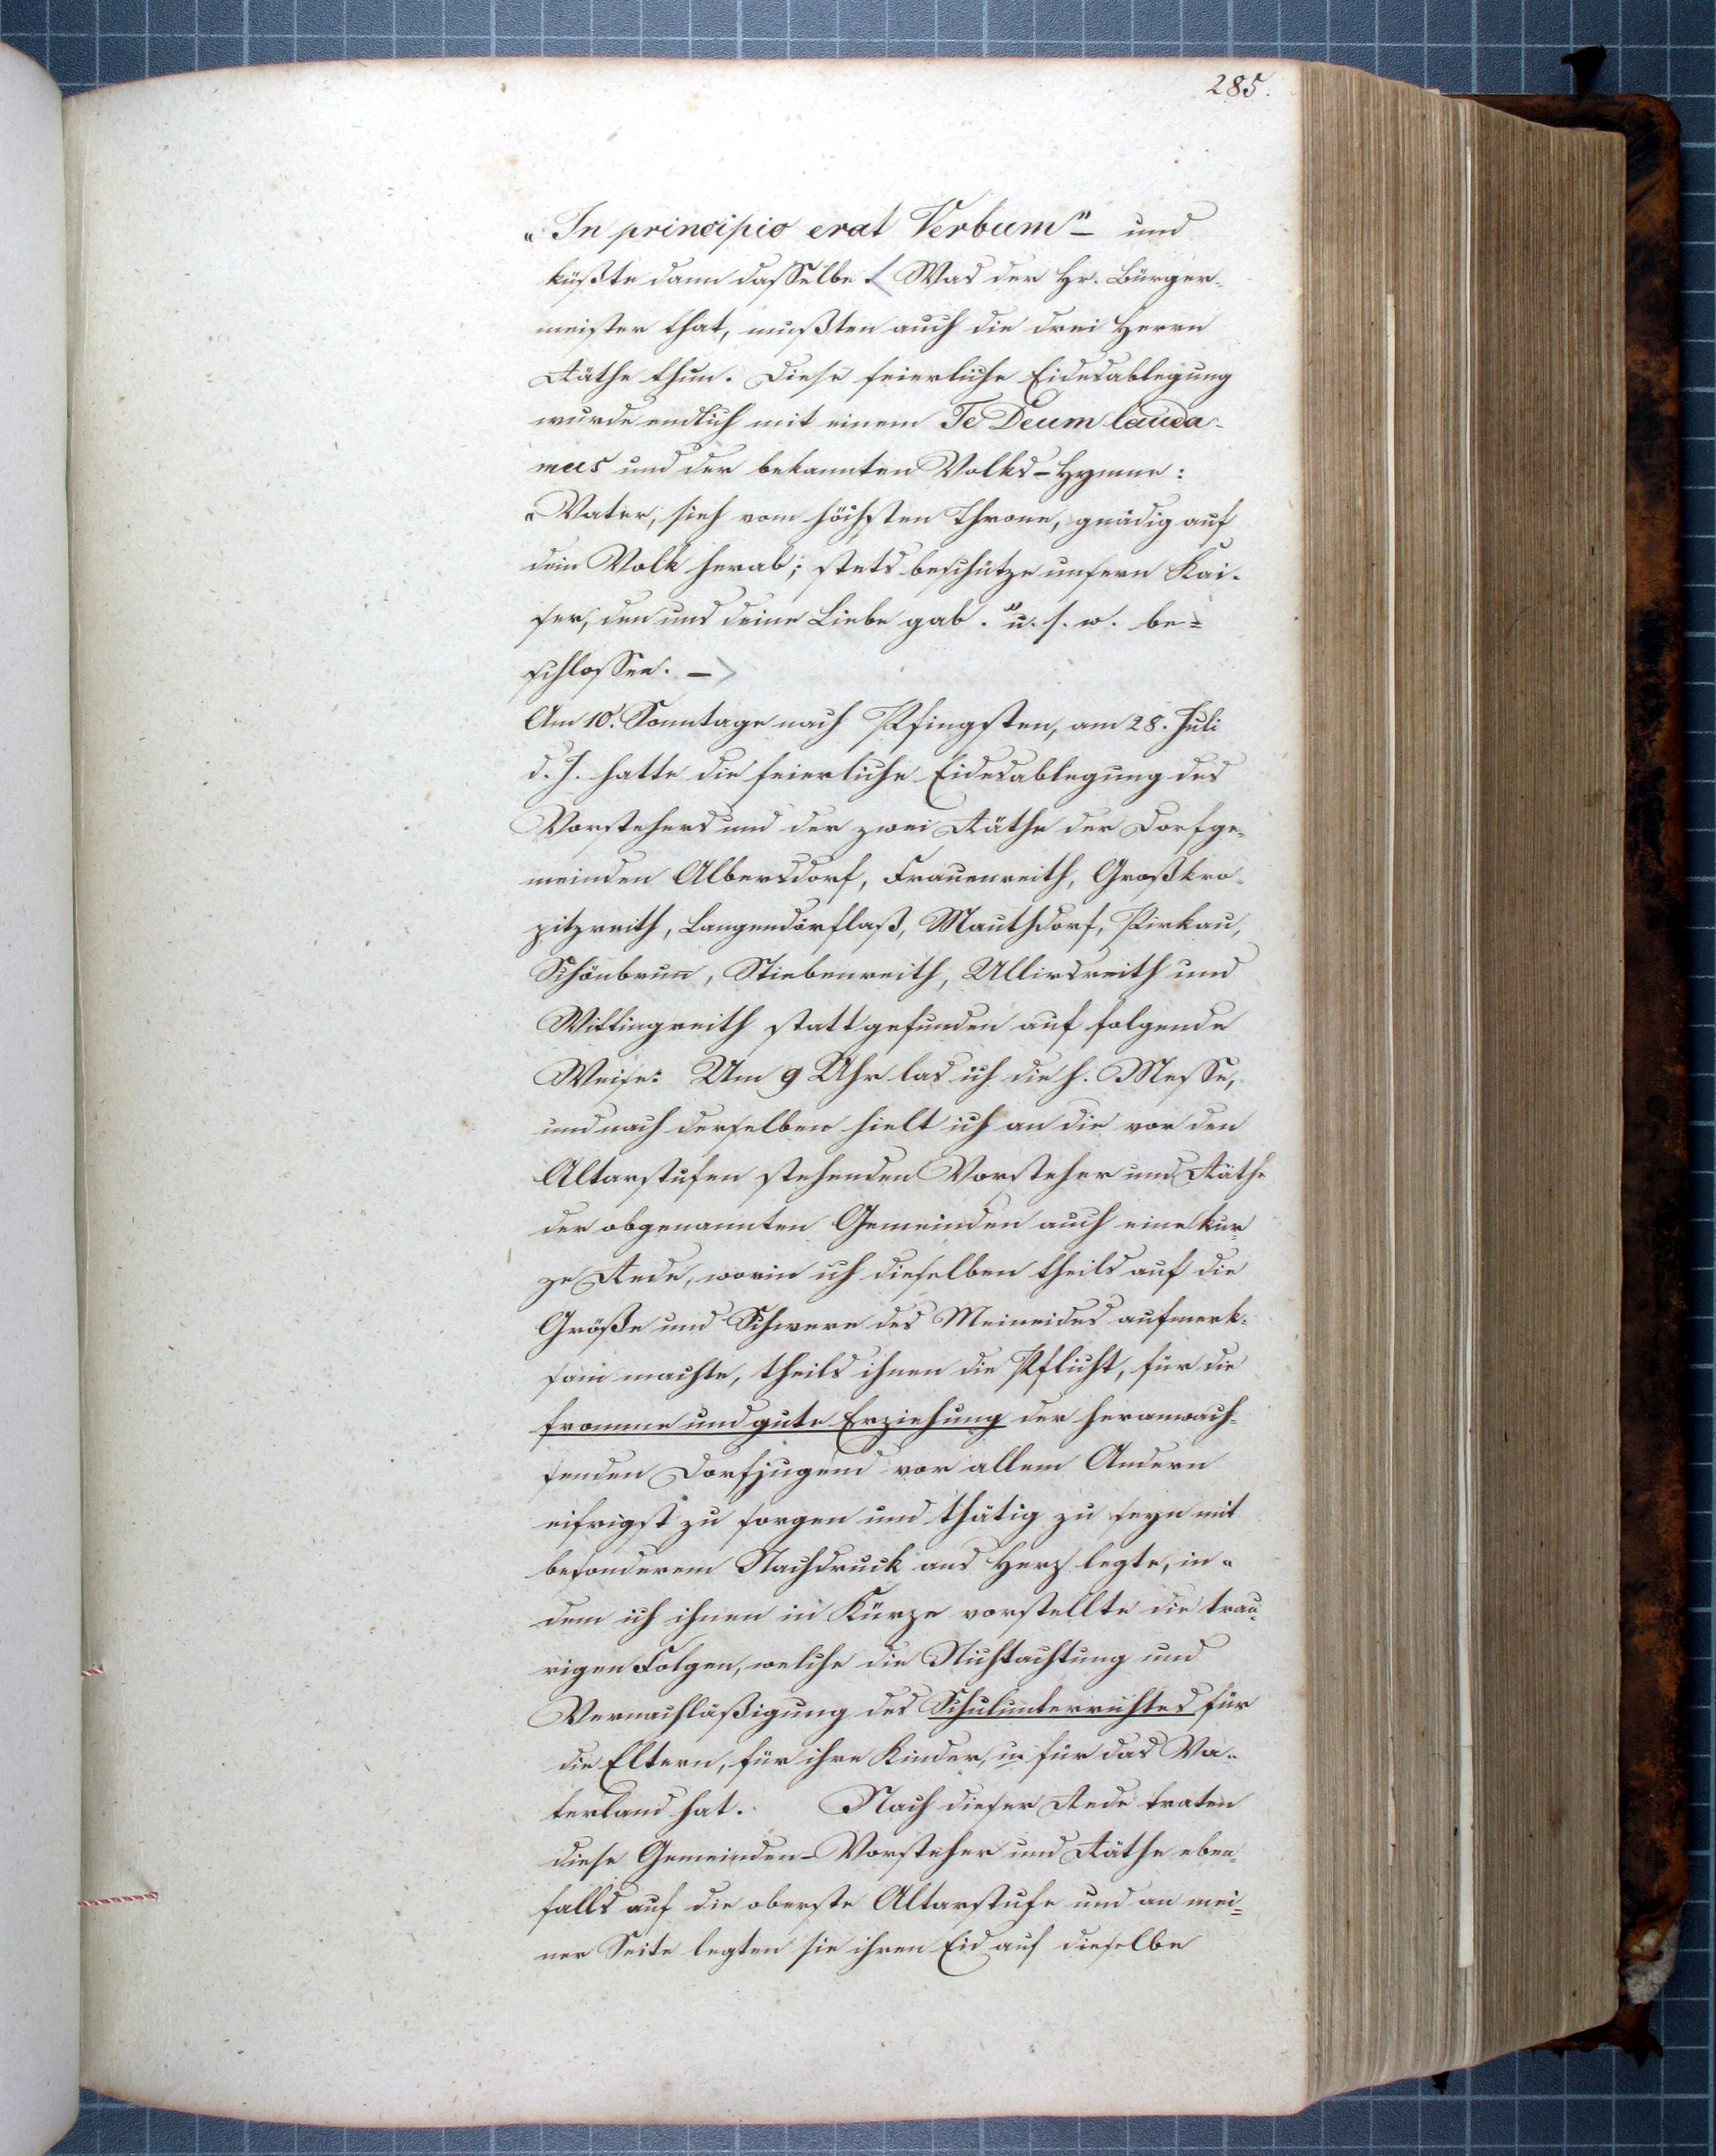 285.
„In principio erat Verbum“ – und
küßte dann dasselbe. < Was der Hr. Bürger-
meister that, mußten auch die drei Herrn
Räthe thun. Diese feierliche Eidesablegung
wurde endlich mit einem Te Deum lauda-
mus und der bekannten Volks-Hymne:
„Vater, sieh vom höchsten Throne, gnädig auf
dein Volk herab; stets beschütze unsern Kai-
ser, den uns deine Liebe gab.“ u. s. w. be=
schlossen. – >
Am 10. Sonntage nach Pfingsten, am 28. Juli
d. J. hatte die feierliche Eidesablegung des
Vorstehers und der zwei Räthe der Dorfge-
meinden Albersdorf, Frauenreith, Großkro-
pitzreith, Langendörflaß, Mauthdorf, Pirkau,
Schönbrun̅, Stiebenreith, Ullirsreith und
Wittingreith stattgefunden auf folgende
Weise: Um 9 Uhr las ich die h. Messe,
und nach derselben hielt ich an die vor den
Altarstufen stehenden Vorsteher und Räthe
der obgenannten Gemeinden auch eine kur=
ze Rede, worin ich dieselben theils auf die
Größe und Schwere des Meineides aufmerk-
sam machte, theils ihnen die Pflicht, für die
fromme und gute Erziehung der heranwach=
senden Dorfjugend vor allem Andern
eifrigst zu sorgen und thätig zu seyn mit
besonderem Nachdruck ans Herz legte, in-
dem ich ihnen in Kürze vorstellte die trau-
rigen Folgen, welche die Nichtachtung und
Vernachläßigung des Schulunterrichtes für
die Eltern, für ihre Kinder, u. für das Va-
terland hat. Nach dieser Rede traten
diese Gemeinden-Vorsteher und Räthe eben-
falls auf die oberste Altarstufe und an mei=
ner Seite legten sie ihren Eid auf dieselbe